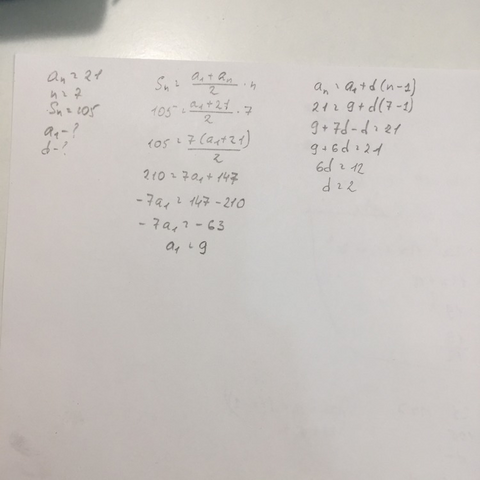 aₙ = 21
n = 7
Sₙ = 105
a₁ - ?
d - ?
Sₙ = (a₁ + aₙ)/2 · n
105 = (a₁ + 21)/2 · 7
105 = 7(a₁ + 21)/2
210 = 7a₁ + 147
-7a₁ = 147 - 210
-7a₁ = -63
a₁ = 9
aₙ = a₁ + d(n-1)
21 = 9 + d(7-1)
9 + 7d - d = 21
9 + 6d = 21
6d = 12
d = 2